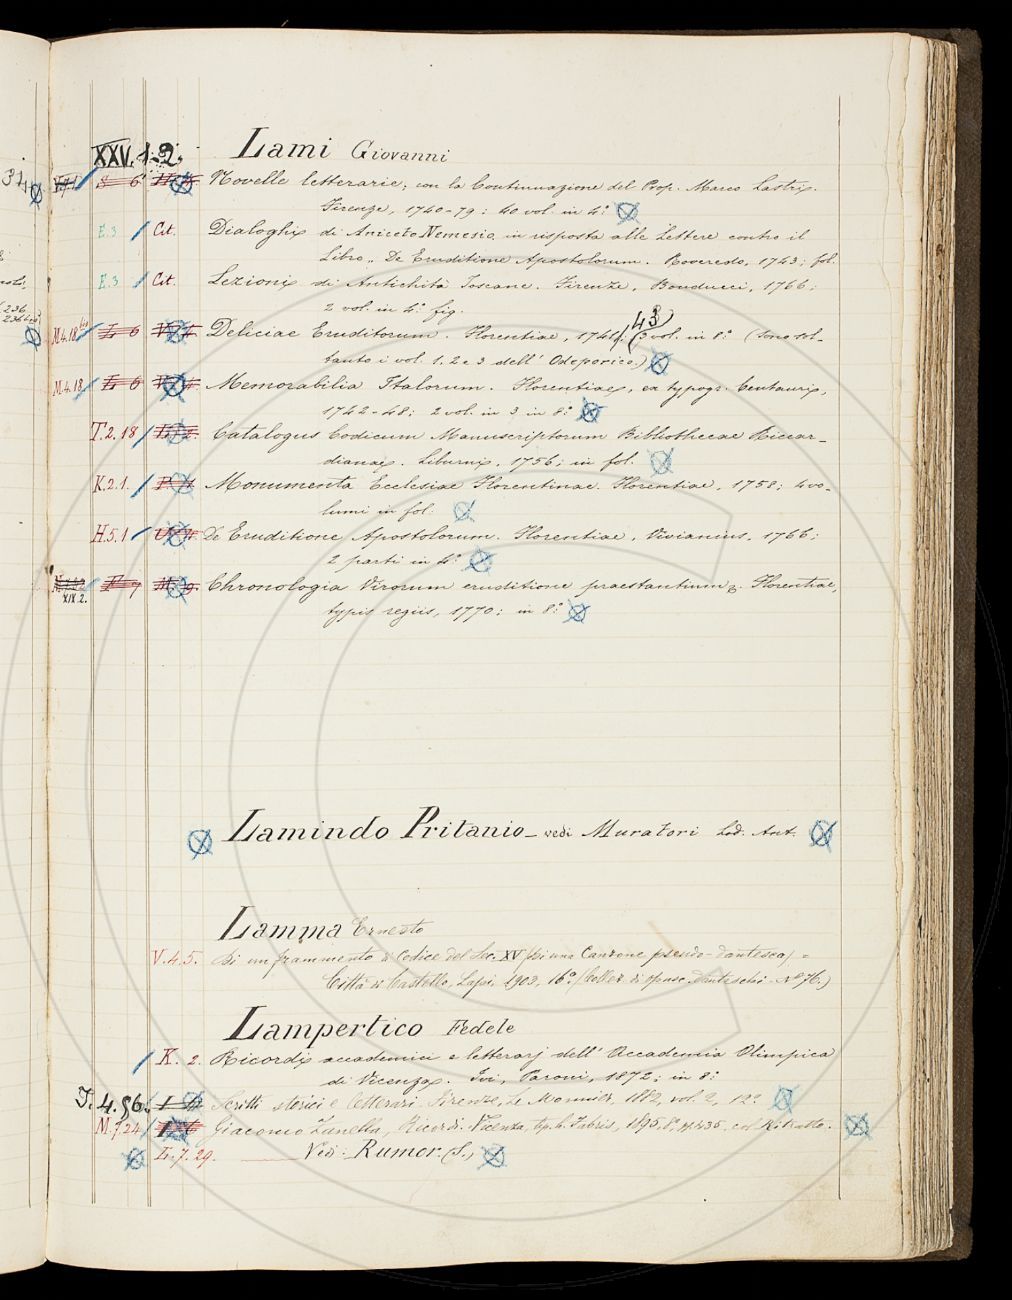 XXV. 1-2.
Lami Giovanni
Novelle letterarie; con la Continuazione del Prop. Marco Lastri.
Firenze, 1740-79; 40 vol. in 4.°
E.3 Cit. Dialoghi di Aniceto Nemesio in risposta alle Lettere contro il
Libro „ De Eruditione Apostolorum. Roveredo, 1743; fol.
E.3 Cit. Lezioni di Antichità Toscane. Firenze, Bonducci, 1766;
2 vol. in 4.° fig.
M4.18 bis L 6 Deliciae Eruditorum. Florentiae, 174 43) (3 vol. in 8.° (Sono sol-
tanto i vol. 1. 2 e 3 dell' Odeporico.)
M.4.18 L 6 Memorabilia Italorum. Florentiae, ex typogr. Centauri,
1742-48; 2 vol. in 3 in 8.°
T.2.18 Catalogus Codicum Manuscriptorum Bibliothecae Riccar-
dianae. Liburni, 1756; in fol.
K.2.1. Monumenta Ecclesiae Florentinae. Florentiae, 1758; 4 vo-
lumi in fol.
H.5.1 De Eruditione Apostolorum. Florentiae, Vivianius, 1766;
2 parti in 4.°
XIX.2. Chronologia Virorum eruditione praestantium &. Florentiae,
typis regiis, 1770; in 8.°
Lamindo Pritanio - vedi Muratori Lod. Ant.
Lamma Ernesto
V.4.5. Di un frammento di Codice del Sec. XV (Di una Canzone pseudo-dantesca) =
Città di Castello, Lapi, 1903, 16.° (Collez. di opusc. danteschi. N.° 76.)
Lampertico Fedele
K. 2. Ricordi accademici e letterarj dell' Accademia Olimpica
di Vicenza. Ivi, Paroni, 1872; in 8.°
J. 4. 56. Scritti storici e letterari. Firenze, Le Monnier, 1882, vol. 2, 12.°
M.7.24 Giacomo Zanella, Ricordi. Vicenza, tip. S. Fabris, 1895, 8.° col Ritratto.
L.7.29. Vedi: Rumor. (S.)